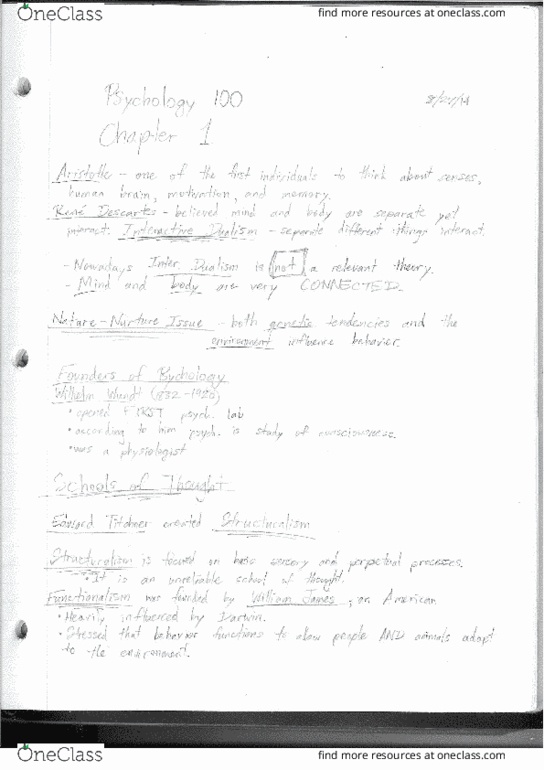 OneClass
find more resources at oneclass.com
Psychology 100
Chapter 1
Aristotle - one of the first individuals to think about senses,
human brain, motivation, and memory.
René Descartes - believed mind and body are separate yet
interact. Interactive Dualism - separate different things interact.
- Nowadays Inter Dualism is not a relevant theory.
- Mind and body are very CONNECTED.
Nature-Nurture Issue - both genetic tendencies and the
environment influence behavior.
Founders of Psychology
Wilhelm (1832-1920)
• opened FIRST psych. lab
• according to him psych. is study of consciousness.
• was a physiologist
Schools of Thought
Edward Titchner created Structuralism
Structuralism is focused on basic sensory and perceptual processes.
• It is an unreliable school of thought.
Functionalism was founded by William James, an American
• Heavily influenced by Darwin.
• Stressed that behavior functions to allow people AND animals adapt
to the environment.
OneClass
find more resources at oneclass.com